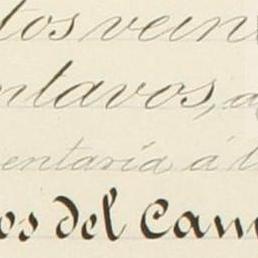 tos vein
ntavos, a
entaria á l
os del Cam